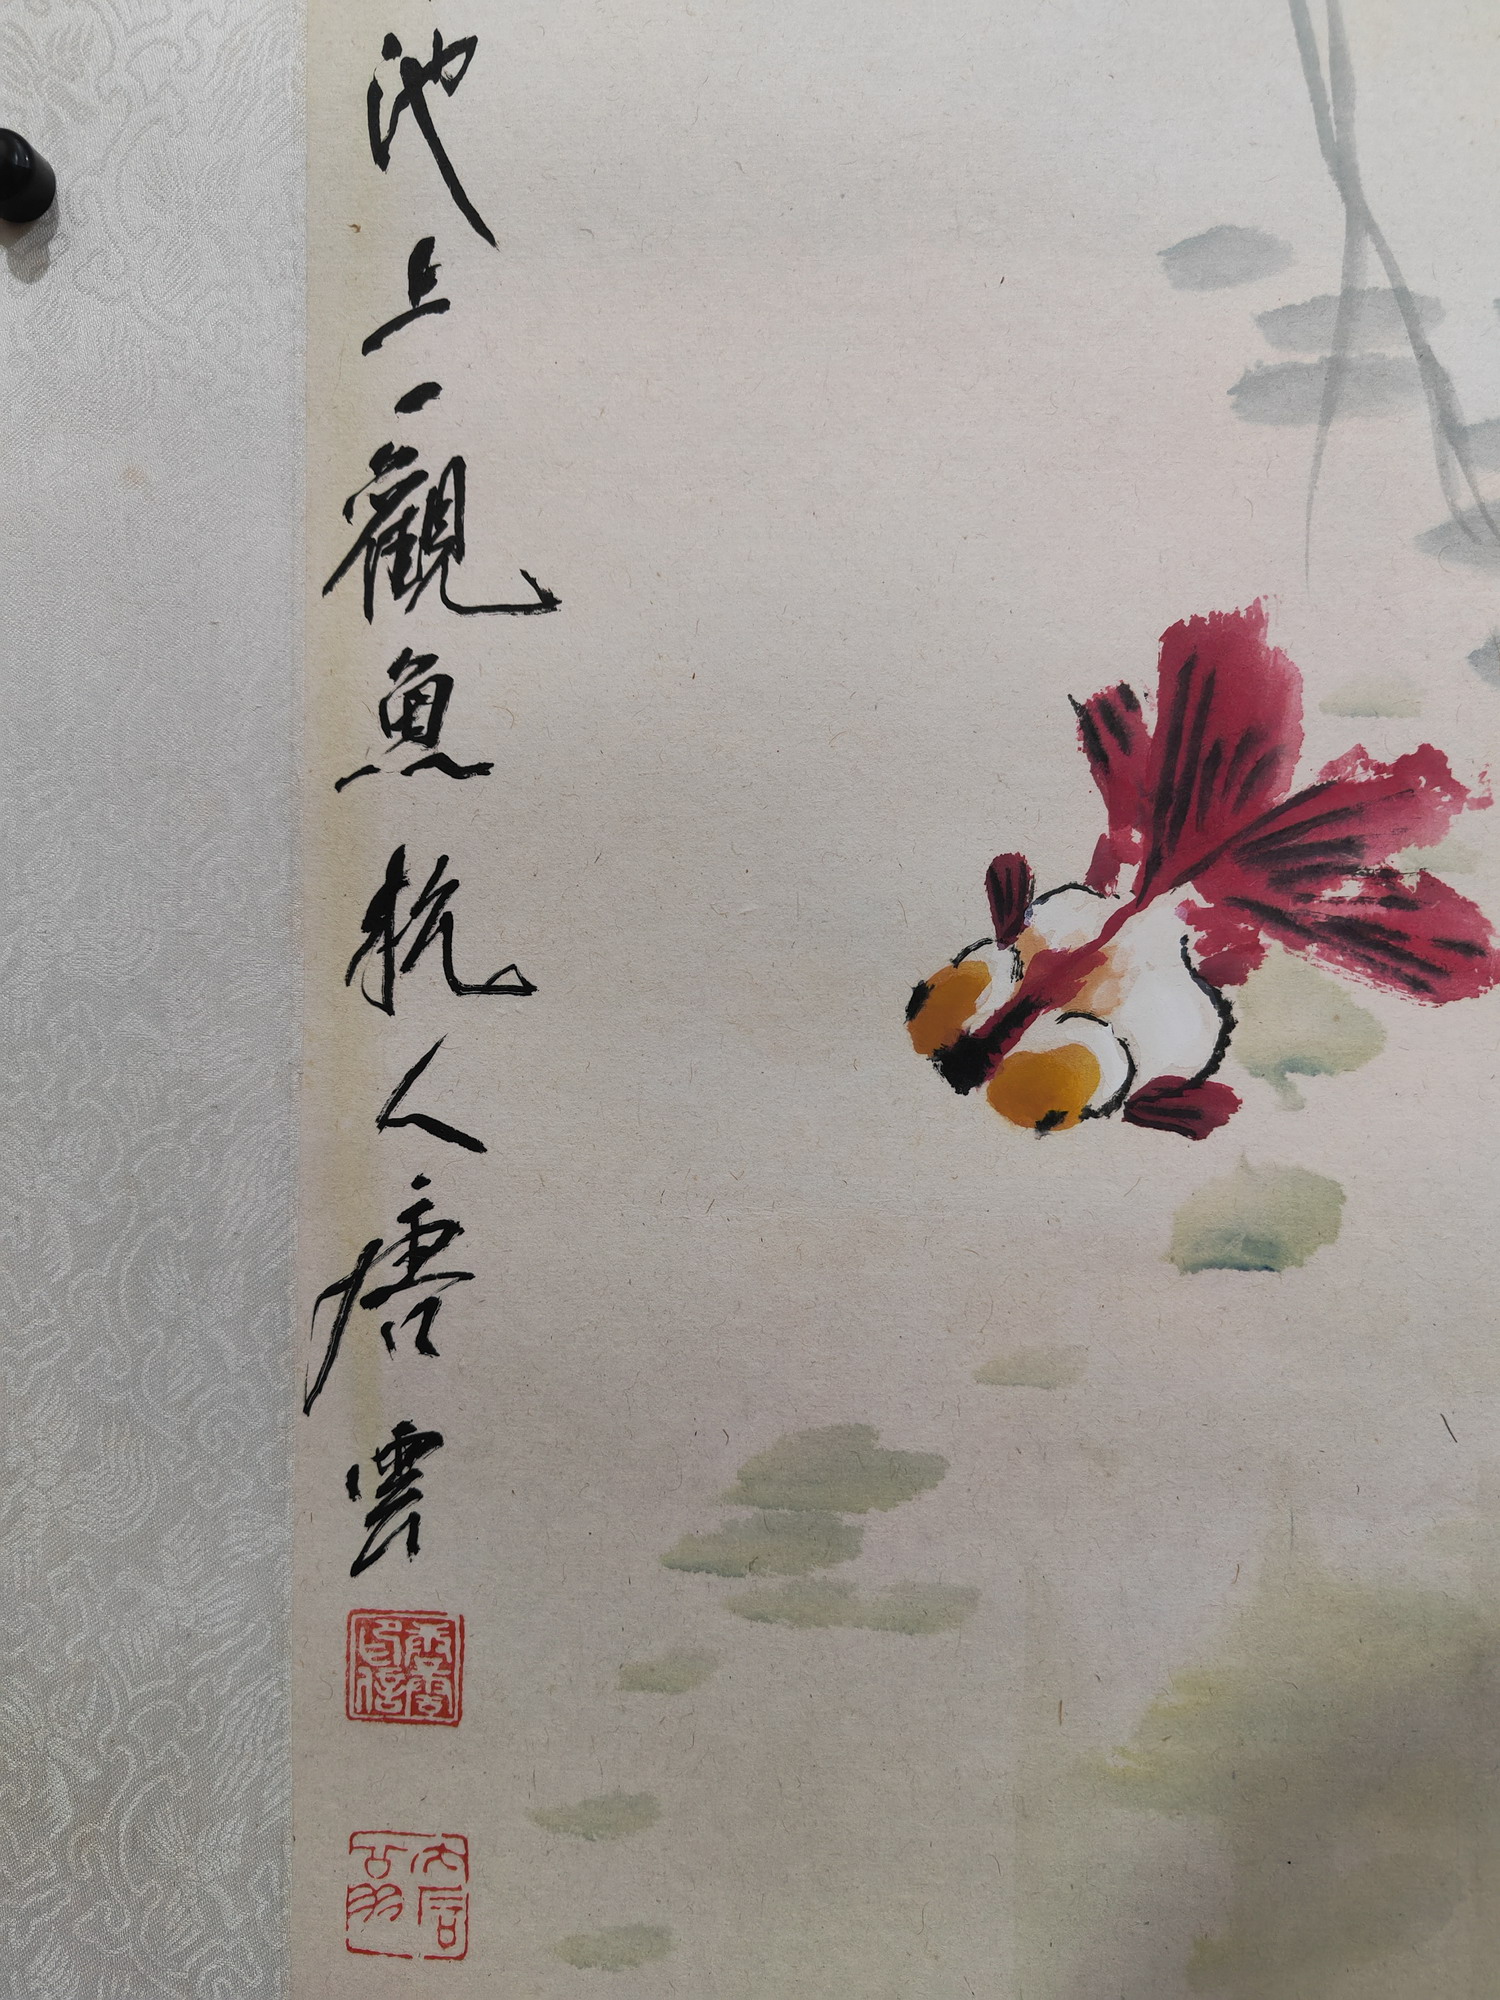 池上一觀魚杭人唐雲